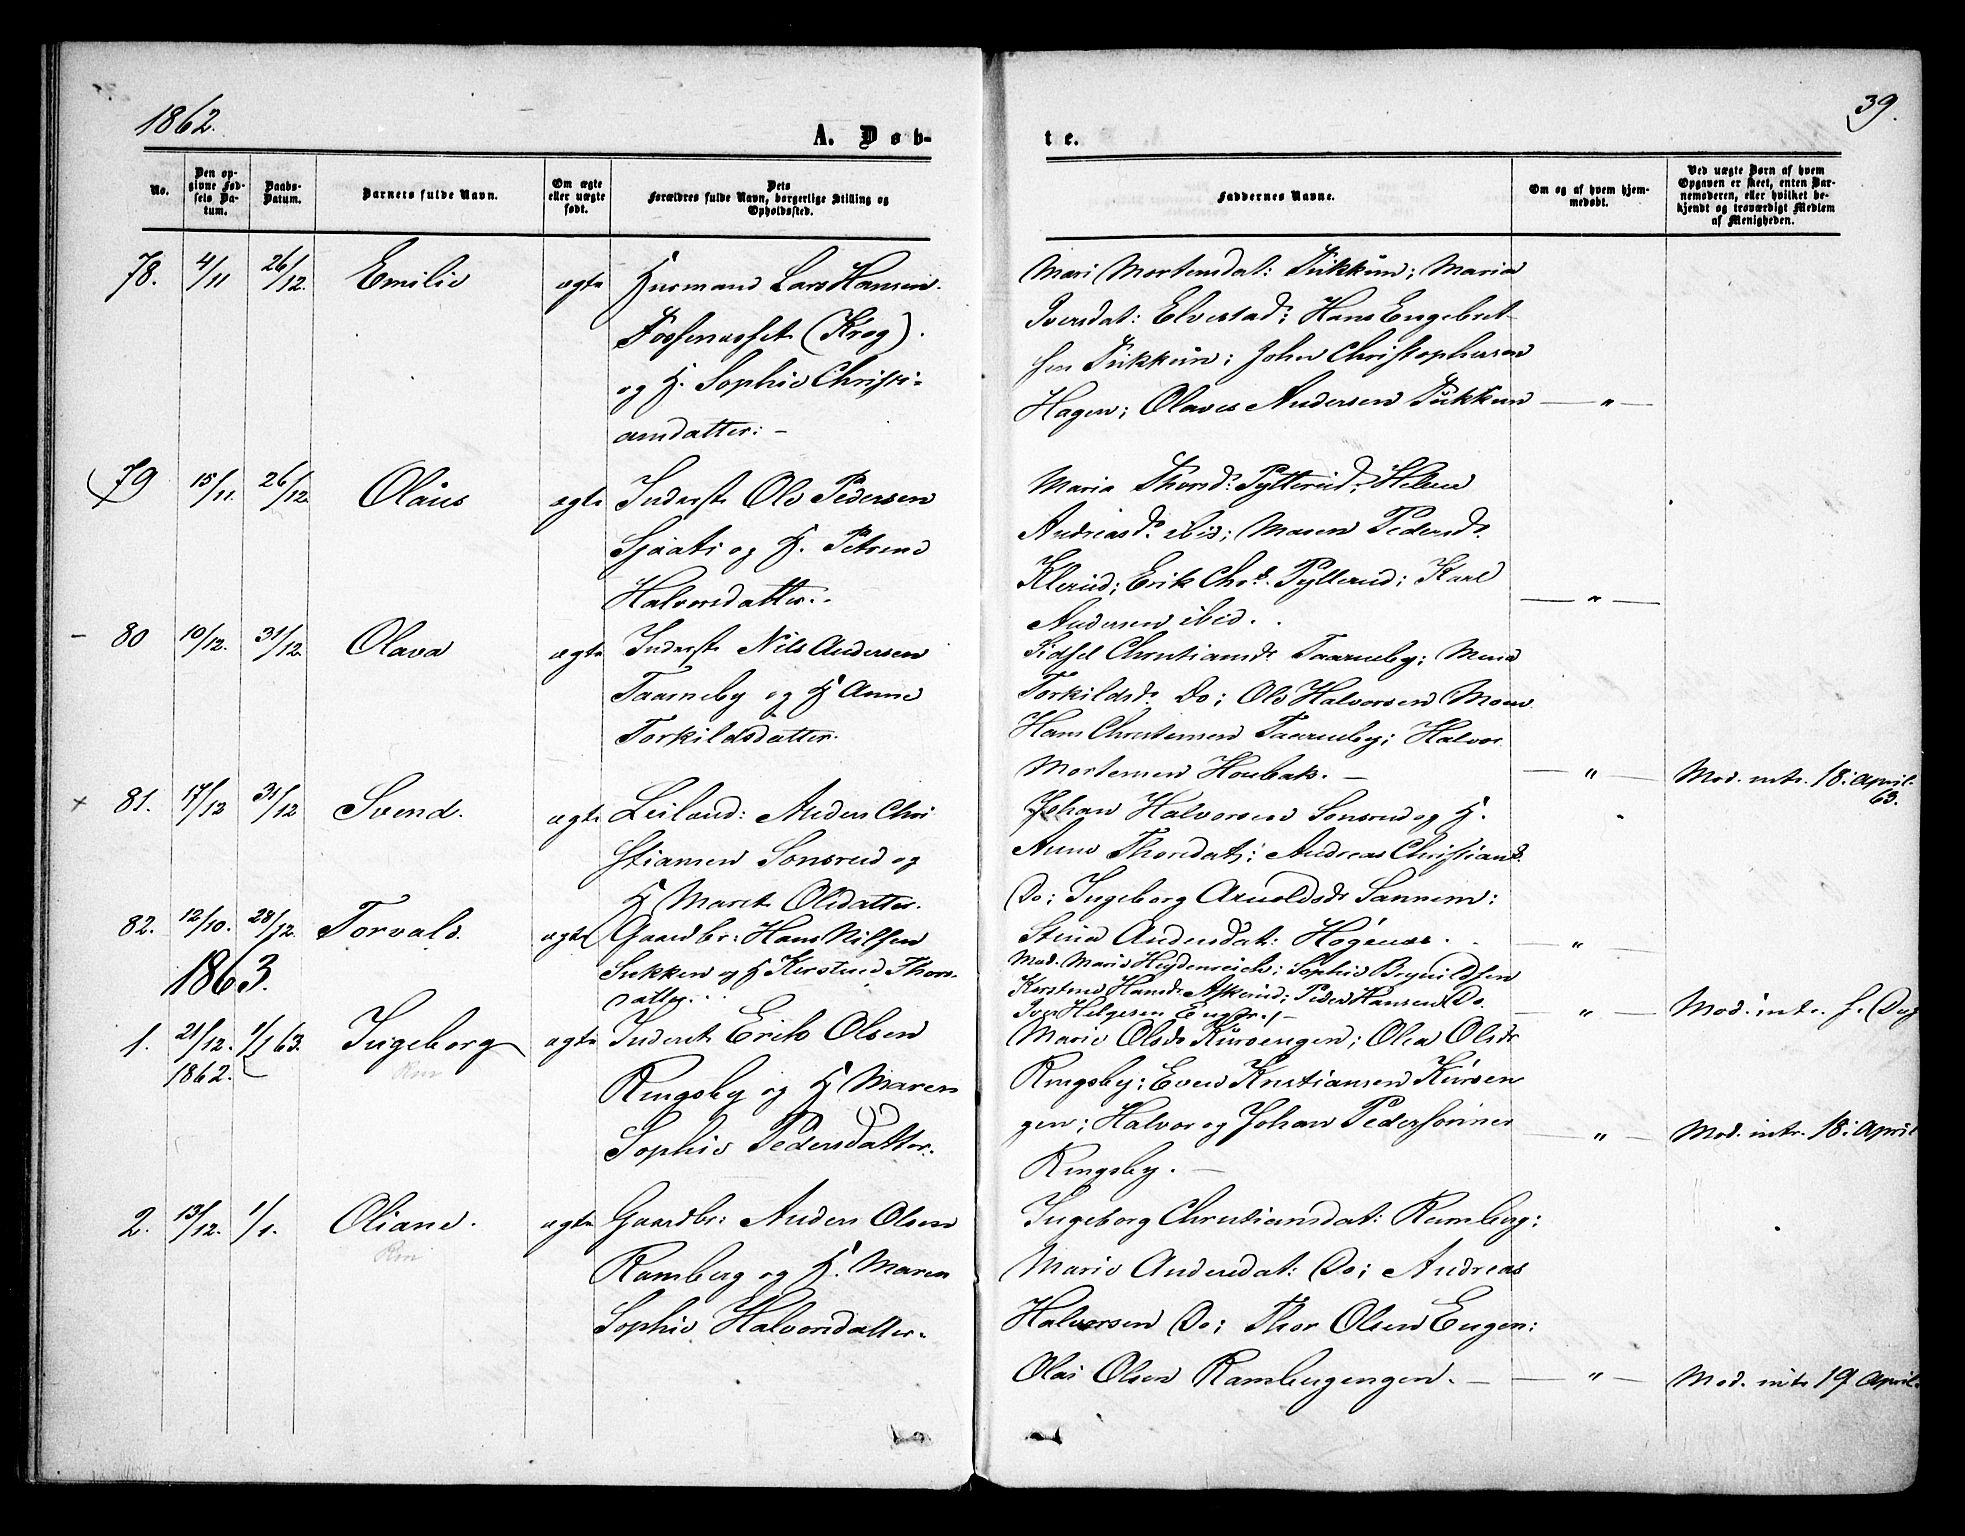 1862.
39.
A. Døb-
te.
No.
Den op-
givne Fød-
sels Da-
tum.
Daabs-
Datum.
Barnets fulde Navn.
Om ægte
eller uægte
født.
Dets
Forældres fulde Navn, borgerlige Stilling og
Opholdssted.
Faddernes Navne.
Om og af hvem hjem-
medøbt.
Ved uægte Børn af hvem
Opgaven er skeet, enten Bar-
nemoderen, eller hvilket be-
kjendt og troværdigt Medlem
af Menigheden.
78. 4/11 26/12. Emilie ægte Huusmand Lars Hansen
Fossenæsset (Krog).
og H. Sophie Christi-
ansdatter: -
Mari Mortensdat: ; Maria
Iversdat: Elvestad; Hans Engebret-
sen ; Johan Christophersen
Hagen; Olaves Andersen — „ —
79 15/11. 26/12. Olaus ægte Inderst Ole Pedersen
og H. Petrine
Halvorsdatter.
Maria Thorsd: Pytterud; Helene
Andreasd. ibid; Maren Pedersd.
Klerud; Erik Chr. Pytterud; Karl
Andersen ibid. — „ —
80 10/12. 31/12. Olava ægte Inderst Nils Andersen
Taarneby og H Anne
Torkildsdatter.
Sidsel Christiansd. Taarneby; Mina
Torkildsd. Do; Ole Halvorsen Moen
Hans Christensen Taarneby; Halvor
Mortensen Houbak. — — „ — Mod. intr. 18. April.
63.
81. 17/12 31/12 Svend. ægte Leiland: Anders Chri
stiansen Sonsrud og
H Marete Olsdatter.
Johan Halvorsen Sonsrud og H.
Anne Thorsdat; Andreas Christians.
Do; Ingeborg Arnoldsd. Sannem:
Stina Andersdat: . — „ —
82. 12/10. 28/12. Torvald. ægte Gaardbr: Hans Nilsen
Sukken og H Kirstine Thors-
datter.
Mad. Marie Heydenreich; Sophie Brynildsen
Kirstine Hansd. Askerud; Peder Hansen Do
Iver Helgesen Enger. — — „ — Mod. intr. s. Dag
1863.
1. 21/12. 1862. 1/1 63. Ingeborg ægte Inderst Erik Olsen
Ringsby og H Maren
Sophie Pedersdatter.
Marie Olsd. Kursengen; Olea Olsd.
Ringsby; Even Kristiansen Kursen
gen; Halvor og Johan Pedersønner
Ringsby. — — „ — Mod. intr. 18. April
2. 13/12. 1/1. Oliane. ægte Gaardbr: Anders Olsen
Ramberg og H. Maren
Sophie Halvorsdatter.
Ingeborg Christiansdat: Ramberg;
Marie Andersdat: Do; Andreas
Halvorsen Do; Thor Olsen Engen;
Olai Olsen Rambergengen. — — „ — Mod. intr 19 April.